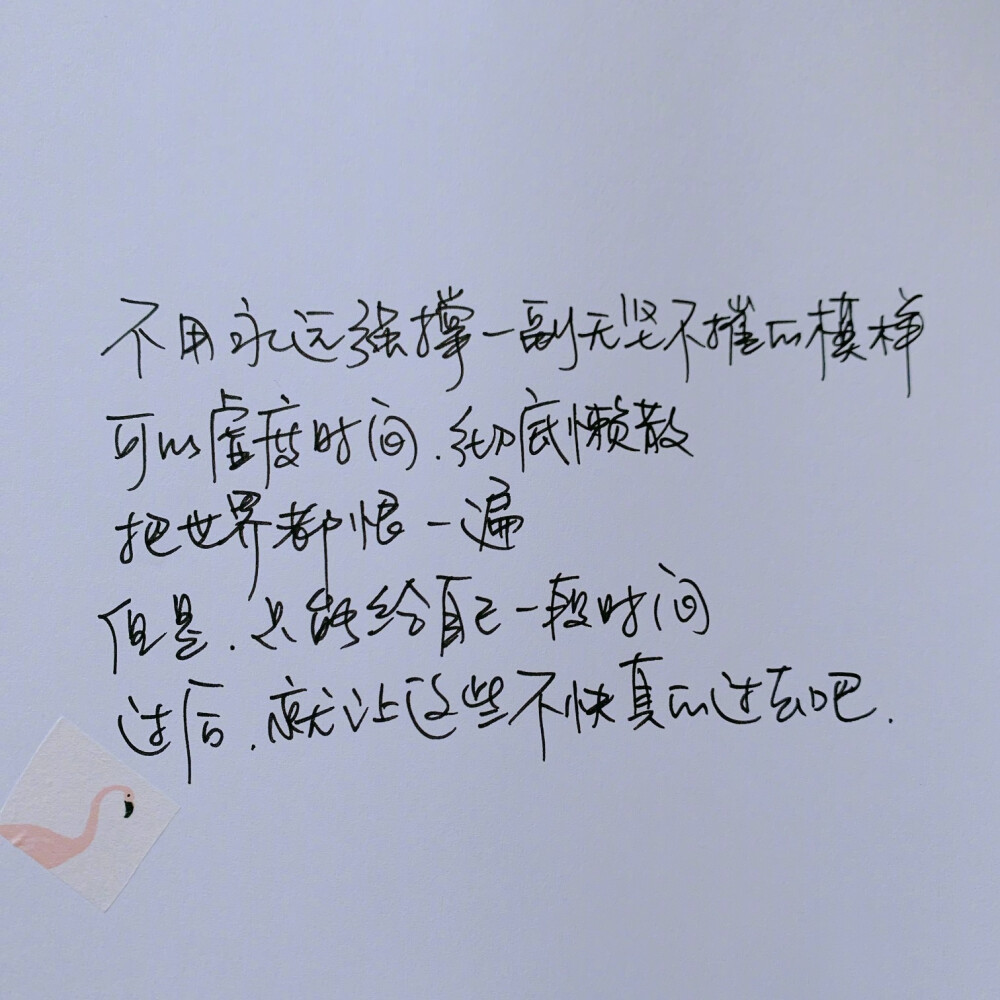 不用永远强撑一副无坚不摧的模样
可以虚度时间.彻底懒散
把世界都恨一遍
但是.只能给自己一段时间
过后.就让这些不快真的过去吧.